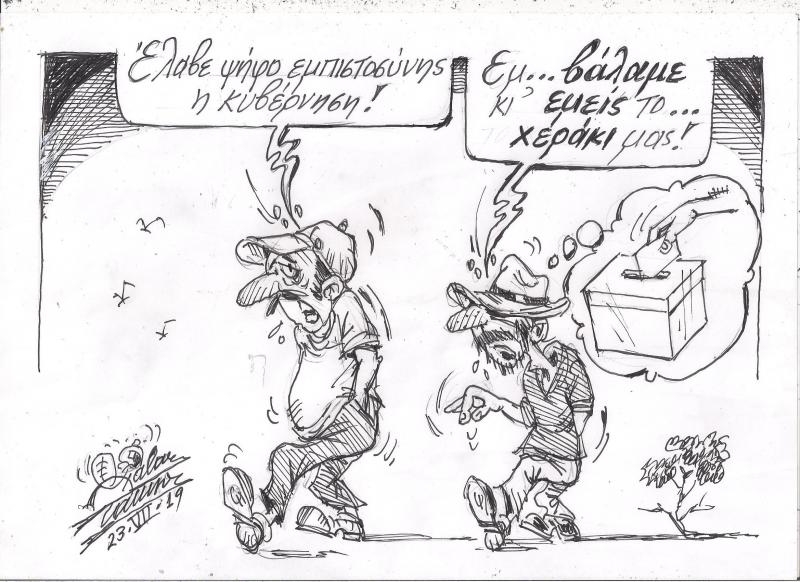 Έλαβε ψήφο εμπιστοσύνης
η κυβέρνηση!
Εμ... βάλαμε
κι' εμείς το...
χεράκι μας!
23·VII·19